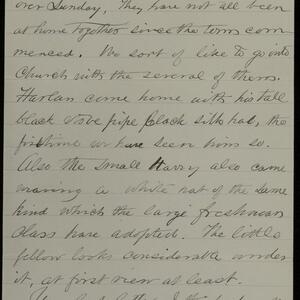 over Sunday, They have not all been
at home together since the term com
menced. We sort of like to go into
Church with the several of them.
Harlan come home with his tall
black stove pipe black silk hat, the
first time we have seen him so.
Also the small Harry also came
waring a white hat of the same
kind which the large freshman
Class have adopted. The little
fellow looks considerable under
it, at first view at least.